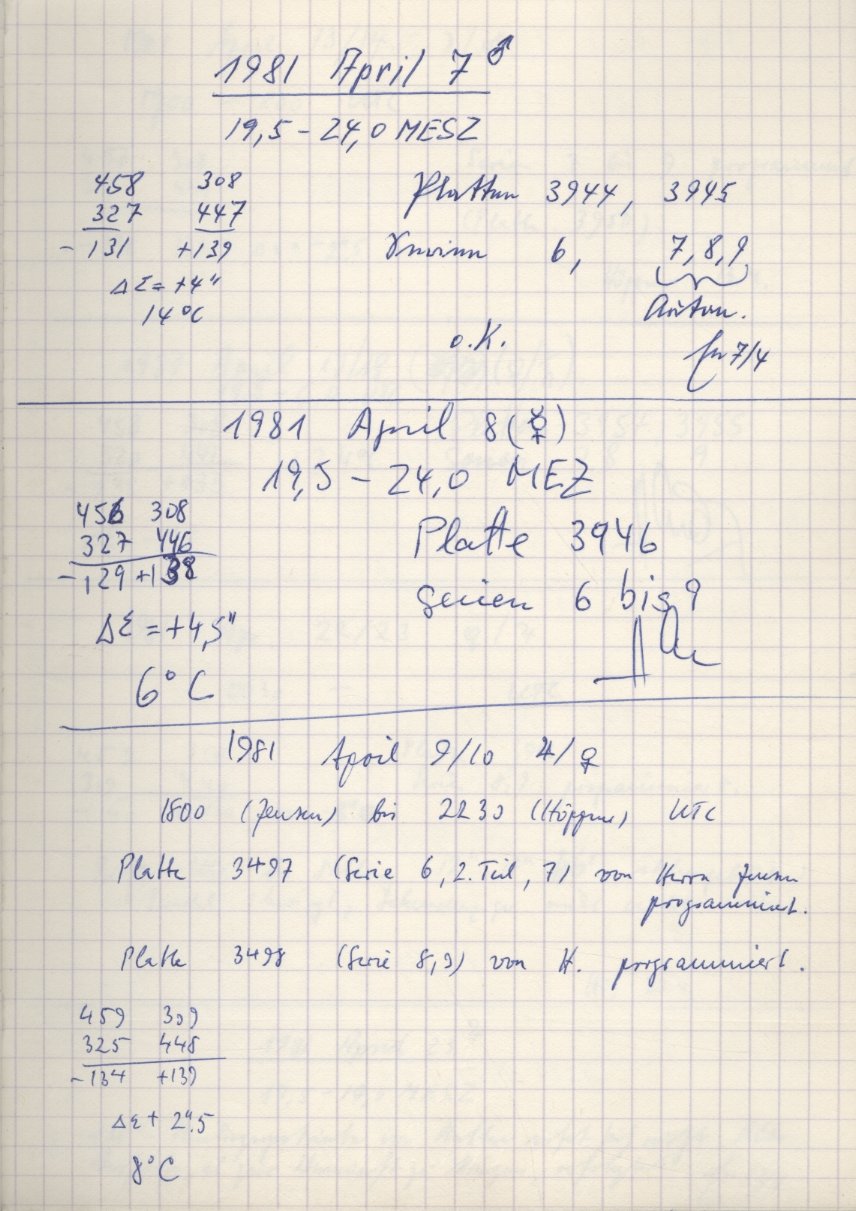 1981 April 7 ♂
19,5 – 24,0 MESZ
458 308
327 447
– 131 +139
ΔΣ = +4"
14°C
Platten 3944, 3945
Serien 6, 7, 8, 9
Autom.
o.K.
7/4
1981 April 8 (☿)
19,5 – 24,0 MEZ
456 308
327 446
– 129 + 138
ΔΣ = +4,5"
6°C
Platte 3946
Serien 6 bis 9
1981 April 9/10 ♃/♀
1800 (Jensen) bis 2230 (Höppner) UTC
Platte 3497 (Serie 6, 2. Teil, 7) von Herrn Jensen
programmiert.
Platte 3498 (Serie 8,9) von H. programmiert.
459 309
325 448
– 134 +139
Δε + 2".5
8°C